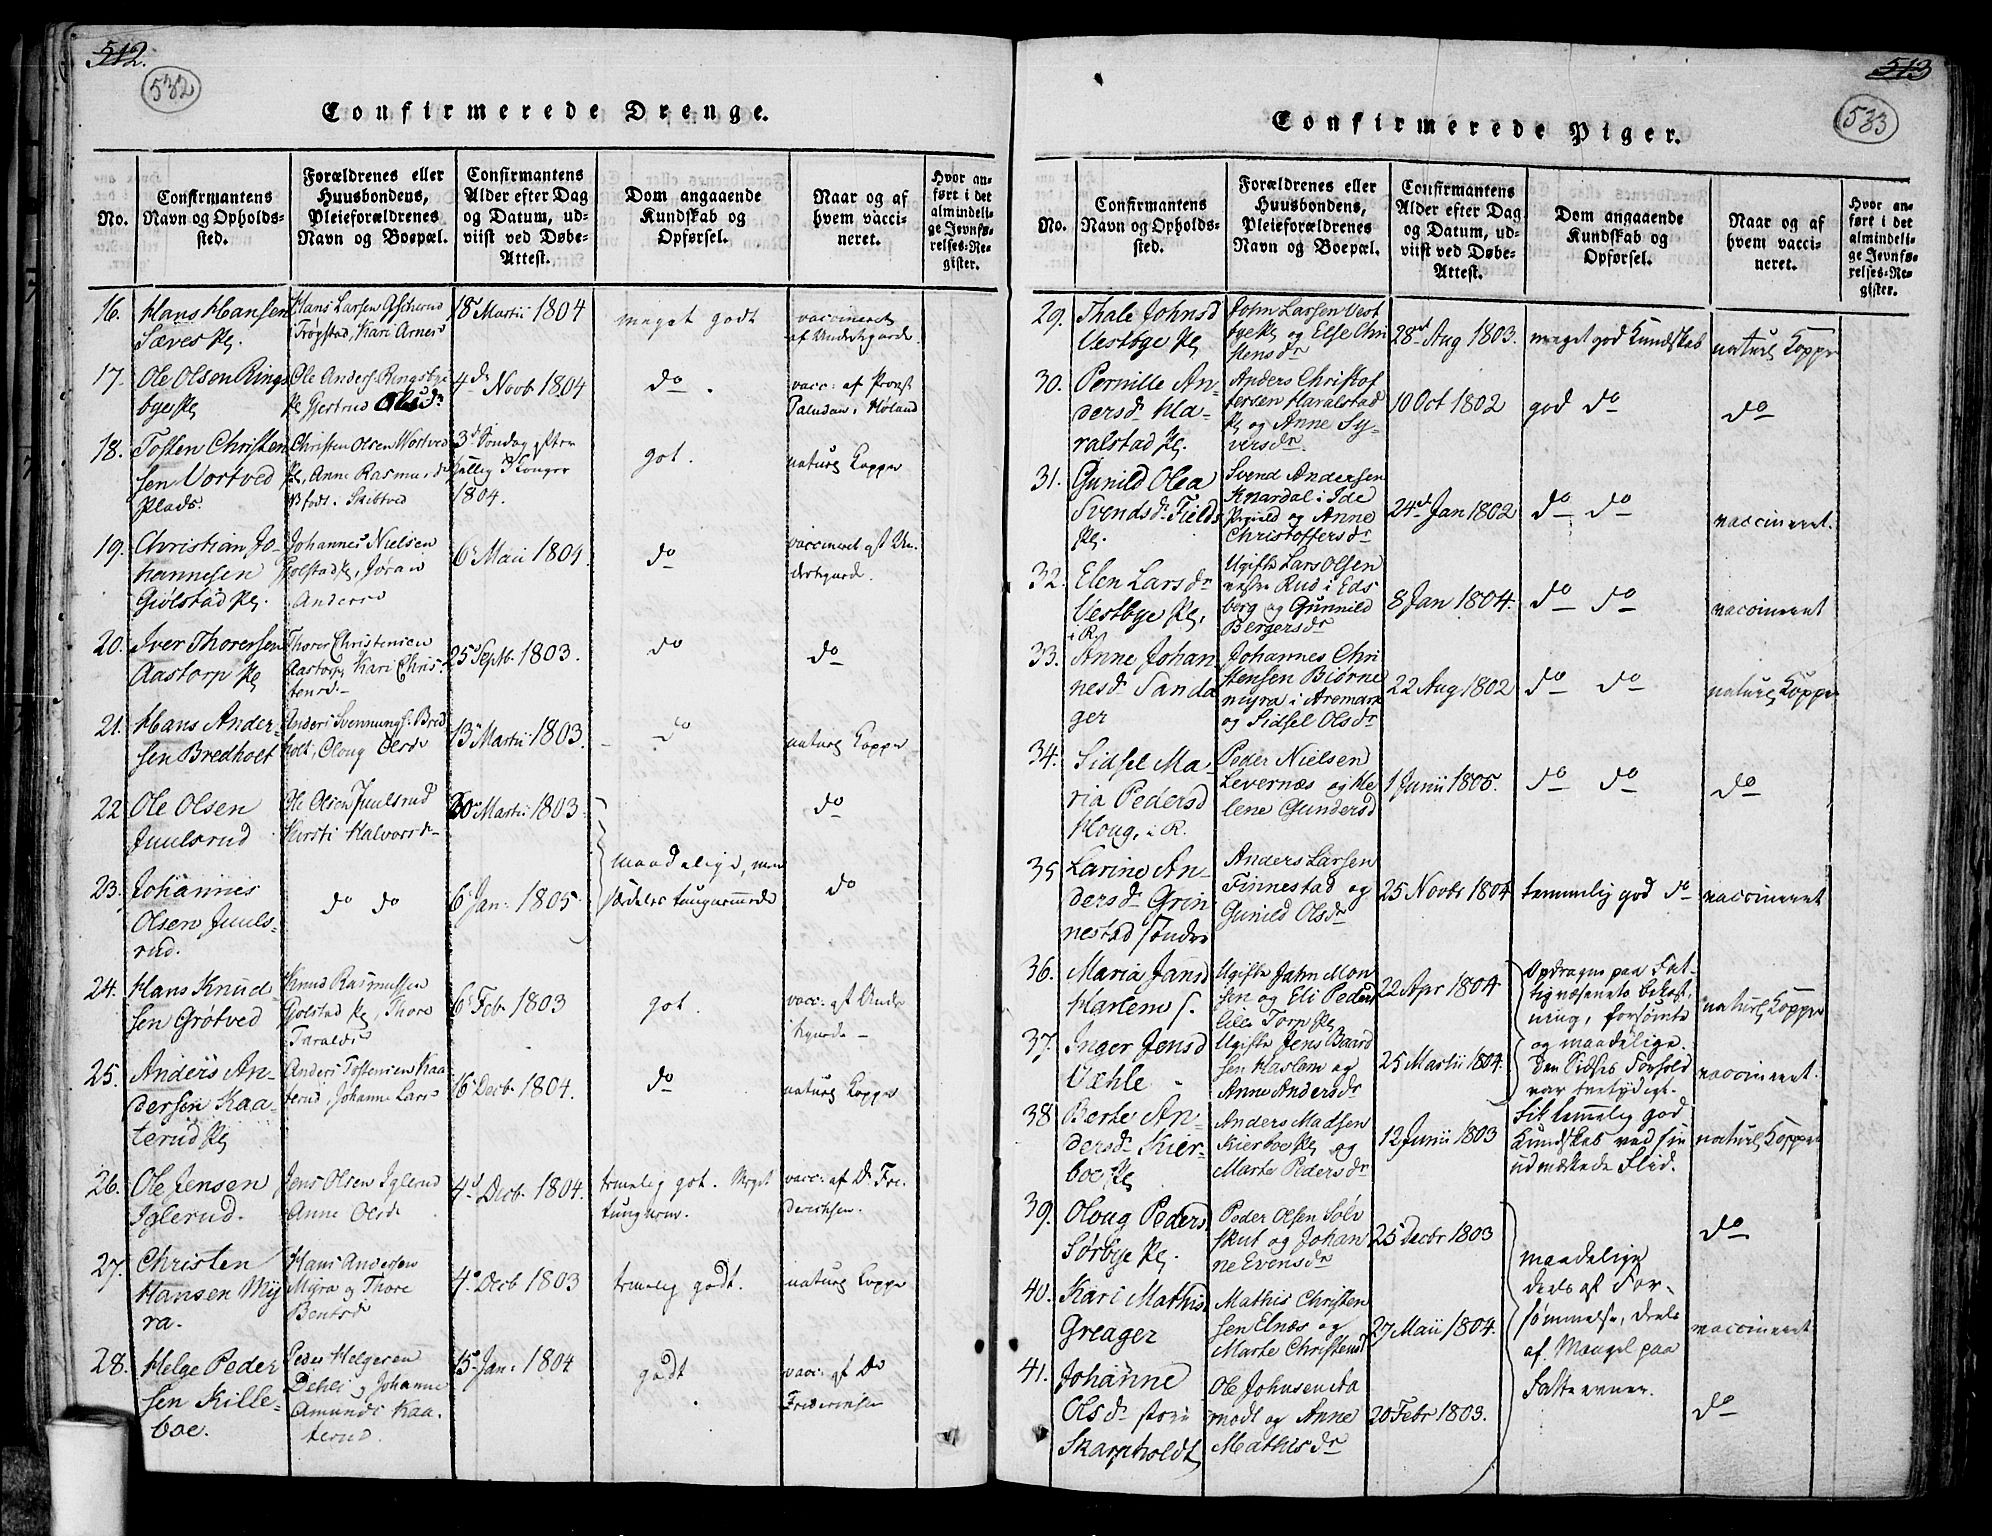 512.
532
Confirmerede Drenge.
No.
Confirmantens
Navn og Opholds-
sted.
Forældrenes eller
Huusbondens,
Pleieforældrenes
Navn og Boepæl.
Confirmantens
Alder efter Dag
og Datum, ud-
viist ved Døbe-
Attest.
Dom angaaende
Kundskab og
Opførsel.
Naar og af
hvem vacci-
neret.
Hvor an-
ført i det
almindeli-
ge Jevnfø-
relses-Re-
gister.
16.
Hans Hansen
Sæves Pl.
Hans Larsen
i Trøgstad, Kari Arnesd
18 Martii 1804
meget godt
vaccineret
17.
Ole Olsen Rings
bye Pl
Ole Anders. Ringsbye
Pl Gjertrud Olsdr
4de Novb 1804
do.
vacc: af Provst
Paludan i Høland
18.
Tosten Christen
sen Vortved
Plads.
Christen Olsen Wortved
Pl, Anne Rasmusd
født i Skibtved
3d Søndag efter
hellig 3 Konger
1804.
got.
naturl Kopper
19.
Christian Jo-
hannesen
Giølstad Pl.
Johannes Nielsen
Gjolstad Pl, Joran
Andersd
6 Maii 1804
do
vaccineret af Un-
dertegnede.
20.
Iver Thorersen
Aastorp Pl
Thorer Christensen
Aastorp, Kari Chris-
tensd
25 Septb. 1803.
do
do
21.
Hans Ander-
sen Bredholt
Anders Svennungs. Bred
holt, Oloug Olsd
13 Martii 1803.
do
naturl Kopper
22
Ole Olsen
Juulsrud
Ole Olsen Juulsrud
Kirsti Halvorsd
20 Martii 1803.
do
23.
Johannes
Olsen Juuls-
rud.
do do
6 Jan. 1805.
maadelige, men
særdeles tungnemmede
do
24.
Hans Knud-
sen Grøtved
Knud Rasmussen
Gjolstad Pl, Thore
Taraldsd
6 Feb. 1803
got.
vacc: af Unde
tegnede
25.
Anders An-
dersen Kaa-
terud Pl
Anders Tostensen Kaa
terud, Johanne Larsd
16 Decb. 1804.
do
naturl Kopper
26.
Ole Jensen
Iglerud.
Jens Olsen Iglerud
Anne Olsd
4d Decb. 1804.
temelig got. Meget
tungnem.
vacc: af D. Fre-
deriksen.
27.
Christen
Hansen My
ra.
Hans Andersen
Myra og Thore
Bentsd
4. Decb 1803
temelig godt.
naturl Kopper
28.
Helge Peder
sen Kille-
boe.
Peder Helgesen
Dehli, Johanne
Amunds. Kaa-
terud.
15 Jan. 1804
godt
vacc: af Do
Friderichsen
513
533
Confirmerede Piger.
No.
Confirmantens
Navn og Opholds-
sted.
Forældrenes eller
Huusbondens,
Pleieforældrenes
Navn og Boepæl.
Confirmantens
Alder efter Dag
og Datum, ud-
viist ved Døbe-
Attest.
Dom angaaende
Kundskab og
Opførsel.
Naar og af
hvem vacci-
neret.
Hvor an-
ført i det
almindeli-
ge Jevnfø-
relses-Re-
gister.
29.
Thale Johnsd
Vestbye Pl
John Larsen Vest
bye Pl og Else Chri
stensdr
28d Aug 1803.
meget god Kundskab
naturl Kopper
30.
Pernille An-
dersd Ha-
ralstad Pl.
Anders Christof
fersen Haralstad
Pl og Anne Sy-
versdr
10 Oct 1802
god do
do
31.
Gunild Olea
Svendsd Field
Pl.
Svend Andersen
Knardal i Ide
Præstegield og Anne
Christoffersdr
24d Jan 1802
do do
vaccineret.
32.
Elen Larsdr
Vestbye Pl,
i R.
Ugifte Lars Olsen
Rud i Eds
berg og Gunnild
Bergersdr
8 Jan 1804.
do do
vaccineret
33.
Anne Johan
nesd Sanda
ger
Johannes Chri
stensen Biørne
myra i Aremark
og Sidsel Olsdr
22 Aug 1802
do do
naturl Kopper
34.
Sidsel Ma-
ria Pedersd
Houg, i R.
Peder Nielsen
Levernæs og He-
lene Gundersd
1 Junii 1805.
do do
do
35
Larine An-
dersd Grin
nestad søndre
Anders Larsen
Finnestad og
Gunild Olsdr
25 Novbr 1804
temmelig god do
vaccineret
36.
Maria Jansd
Harlem s.
Ugifte Jahn Mon
sen og Eli Pedersd
lille Torp Pl
22 Apr 1804
Opdragne paa Fat-
tigvæsenets bekost-
ning, forsømte
og maadelige.
Den Sidstes Forhold
var tvetydigt.
naturl Kopper
37.
Inger Jensd
Vehle
Ugifte Jens Baard
sen Haslem og
Anne Andersdr
25 Martii 1804.
vaccineret.
38
Berte An-
dersd Kier-
boe Pl
Anders Madsen
Kierboe Pl og
Marte Pedersdr
12 Junii 1803
Fik temelig god
Kundskab ved sin
udmærkede Flid.
naturl Kopper
39.
Oloug Pedersd
Sørbye Pl.
Peder Olsen Sølv
skut og Johan
ne Evensdr
25 Decbr 1803
maadelige
deels af For-
sømmelse, deels
af Mangel paa
Fatteevner.
do
40.
Kari Mathisd
Greager
Mathis Christen
sen Elnæs og
Marte Christensd
27 Maii 1804.
vaccineret
41.
Johanne
Olsdr store
Skarpholdt
Ole Johnsen Ida
modt og Anne
Mathisdr
20 Febr 1803.
do